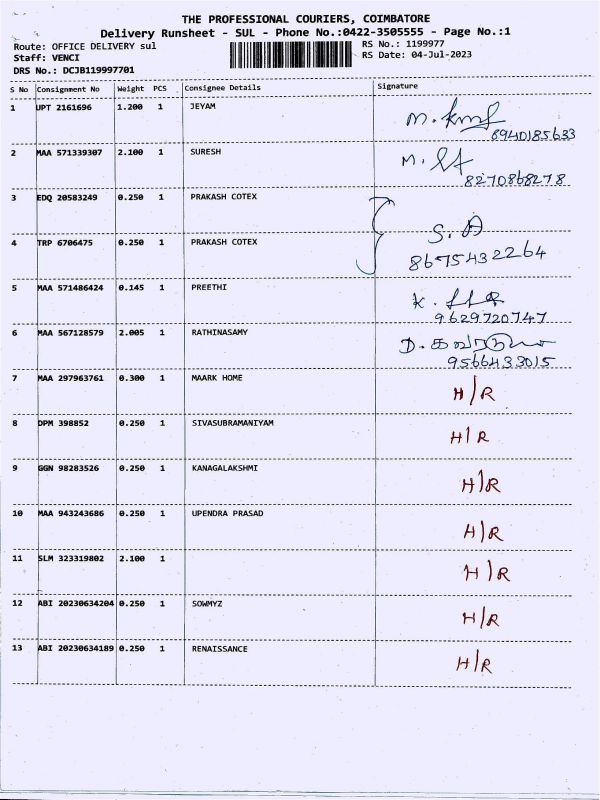 THE PROFESSIONAL COURIERS, COIMBATORE
Delivery Runsheet - SUL - Phone No.:0422-3505555 - Page No.:1
Route: OFFICE DELIVERY sul
RS No.: 1199977
Staff: VENCI
RS Date: 04-Jul-2023
DRS No.: DCJB119997701
S No Consignment No Weight PCS Consignee Details Signature
1 UPT 2161696 1.200 1 JEYAM M.
8940185633
2 MAA 571339307 2.100 1 SURESH M.
8270868278
3 EDQ 20583249 0.250 1 PRAKASH COTEX
S.
4 TRP 6706475 0.250 1 PRAKASH COTEX
8675432264
5 MAA 571486424 0.145 1 PREETHI K.
9629720747
6 MAA 567128579 2.005 1 RATHINASAMY D.
9566433015
7 MAA 297963761 0.300 1 MAARK HOME H/R
8 DPM 398852 0.250 1 SIVASUBRAMANIYAM H/R
9 GGN 98283526 0.250 1 KANAGALAKSHMI H/R
10 MAA 943243686 0.250 1 UPENDRA PRASAD H/R
11 SLM 323319802 2.100 1 H/R
12 ABI 20230634204 0.250 1 SOWMYZ H/R
13 ABI 20230634189 0.250 1 RENAISSANCE H/R